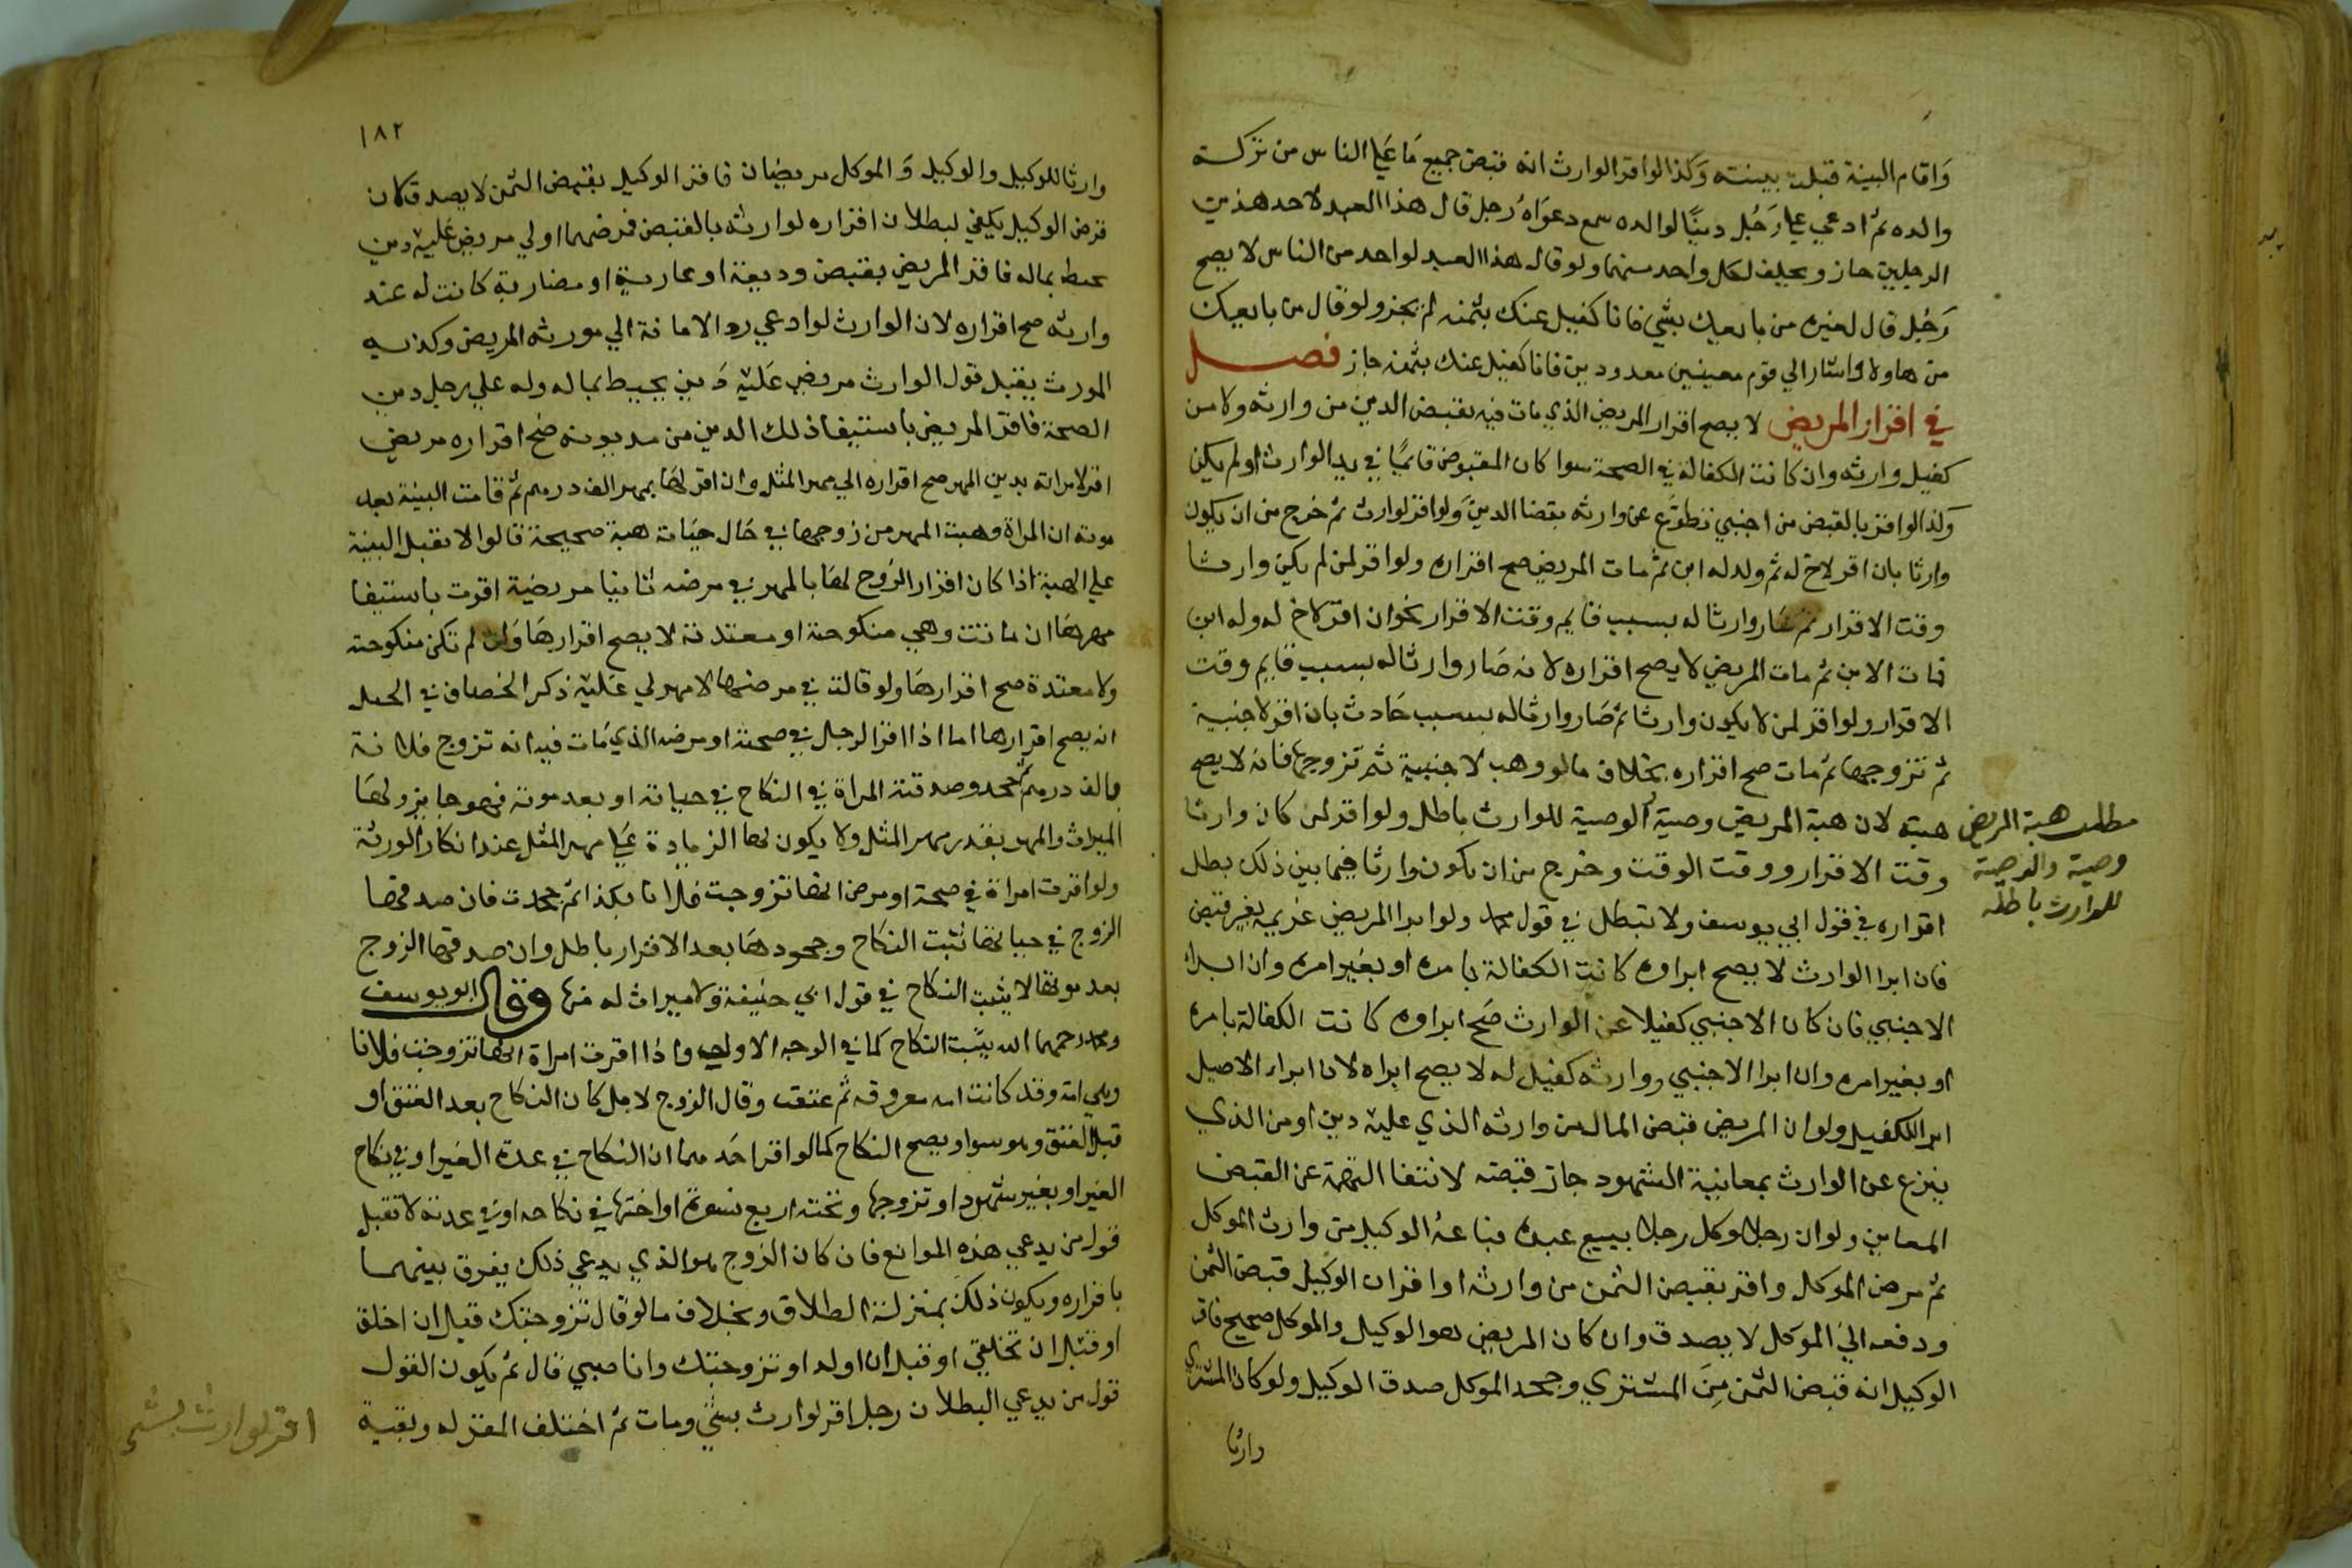 وَاقام البينة قبلت بينته وَكذا لو اقر الوارث انه قبض جميع مَا عَلي الناس من تركـة
والده ثم ادعي علي رَجُل دينًا لوالده سمع دعوَاهُ رجل قال هذا العبد لاحد هذين
الرجلين جاز ويحلف لكل واحد منهما ولو قال هذا العبد لواحد من الناس لا يصح
رَجُل قال لغيره من بايعك بشي فانا كفيل عنك بثمنه لم يجز ولو قال من بايعك
من هاولا واشار الي قوم معينين معدودين فانا كفيل عنك بثمنه جاز فصـــل
في اقرار المريض لا يصح اقرار المريض الذي مات فيه بقبض الدين من وارثه ولا من
كفيل وارثه وان كانت الكفالة في الصحة سوا كان المقبوض قائمًا في يد الوارث او لم يكن
وَكذا لو اقر بالقبض من اجنبي تطوّع عن وارثه بقضا الدين وَلو اقر لوارث ثم خرج من ان يكون
وارثا بان اقر لاخ له ثم ولد له ابن ثم مات المريض صح اقراره ولو اقر لمن لم يكن وارثـا
وقت الاقرار ثم صَار وارثا له بسبب قايم وقت الاقرار نحو ان اقر لاخ له وله ابن
فمات الابن ثم مات المريض لا يصح اقراره لانه صَار وارثا له بسبب قايم وقت
الاقرار ولو اقر لمن لا يكون وارثا ثم صَار وارثا له بسبب حَادث بان اقر لاجنبية
ثم تزوجها ثم مات صح اقراره بخلاف ما لو وهب لاجنبية ثم تزوجها فانه لا يصح
هبته لان هبة المريض وصية والوصية للوارث باطل ولو اقر لمن كان وارثا
مطلب هبة المريض
وصية والوصية
للوارث باطله
وقت الاقرار ووقت الوقت وخرج من ان يكون وارثا فيما بين ذلك بطل
اقراره في قول ابي يوسف ولا تبطل في قول محمد ولو ابرا المريض غريمه بغير قبض
فان ابرا الوارث لا يصح ابراوه كانت الكفالة بامره او بغير امره وان ابـرا
الاجنبي فان كان الاجنبي كفيلا عن الوارث صَح ابراوه كانت الكفالة بامره
او بغير امره وان ابرا الاجنبي ووارثه كفيل له لا يصح ابراه لان ابراء الاصيل
ابرا للكفيل ولو ان المريض قبض المال من وارثه الذي عليه دين او من الذي
تبرع عن الوارث بمعاينة الشهود جاز قبضه لانتفا التهمة عن القبض
المعاين ولو ان رجلا وكل رجلا ببيع عبده فباعهُ الوكيل من وارث الموكل
ثم مرض الموكل واقر بقبض الثمن من وارثه او اقر ان الوكيل قبض الثمن
ودفعه اليَ الموَكل لا يصدق وان كان المريض هو الوكيل والموكل صحيح فاقر
الوكيل انه قبض الثمن مِنَ المشتري وجحد الموكل صدق الوكيل ولو كان المشتري
وارثا
١٨٢
وارثا للوكيل والوكيل وَالموكل مريضان فاقر الوكيل بقبض الثمن لا يصدق كان
مرض الوكيل يكفي لبطلان اقراره لوارثه بالقبض فمرضهما اولي مريض عَليْه دين
محيط بماله فاقر المريض بقبض وديعة او عارية او مضاربة كانت له عند
وارثه صح اقراره لان الوارث لو ادعي رد الامانة الي مورثه المريض وكذبـه
المورث يقبل قول الوارث مريض عَليْه دَين يحيط بماله وله علي رجل دين
الصحة فاقر المريض باستيفا ذلك الدين من مديونه صَح اقراره مريض
اقر لامراته بدين المهر صح اقراره الي مهر المثل وان اقر لهَا بمهر الف درهم ثم قامت البينة بعد
موته ان المراة وهبت المهر من زوجها في حَال حَيَاته هبة صحيحة قالوا لا تقبل البينة
علي الهبة اذا كان اقرار الزوج لهَا بالمهر في مرضه ثانيا مريضة اقرت باستيفا
مهرهَا ان ماتت وهي منكوحة او معتدته لا يصح اقرارهَا وَان لم تكن منكوحة
ولا معتدة صح اقرارهَا ولو قالت في مرضها لا مهر لي عَليْه ذكر الخصاف في الحيل
انه يصح اقرارها اما اذا اقر الرجل في صحته او مرضه الذي مَات فيه انه تزوج فلانة
بالف درهم ثم جحد وصدقته المراة في النكاح في حياته او بعد موته فهو جايز ولهَا
الميراث والمهر بقدر مهر المثل ولا يكون لها الزيادة عَلي مهر المثل عند انكار الورثة
ولو اقرت امراة في صحة او مرض انها تزوجت فلانا بكذا ثم جحدت فان صدقها
الزوج في حياتها ثبت النكاح وجحودهَا بعد الاقرار باطل وان صدقها الزوج
بعد موتها لا يثبت النكاح في قول ابي حنيفة ولا ميراث له منها وقال ابو يوسف
ومحمد رحمهما الله يثبت النكاح كما في الوجه الاول واذا اقرت امراة انها تزوجت فلانا
وهي امة وقد كانت امه معروفه ثم عتقت وقال الزوج لا بل كان النكاح بعد العتق او
قبل العتق وهو سوا ويصح النكاح كما لو اقر احَدهما ان النكاح في عدة الغير او في نكاح
الغير او بغير شهود او تزوجها وتحته اربع نسوة او اختها في نكاحه او في عدته لا تقبل
قول من يدعي هذه الموانع فان كان الزوج هو الذي يدعي ذلك يفرق بينهمـا
باقراره ويكون ذلك بمنزلة الطلاق وبخلاف ما لو قال تزوجتك قبل ان اخلق
او قبل ان تخلقي او قبل ان اولد او تزوجتك وانا صبي قال ثم يكون القول
قول من يدعي البطلان رجل اقر لوارث بشي ومات ثم اختلف المقر له وبقية
اقر لوارث بشي